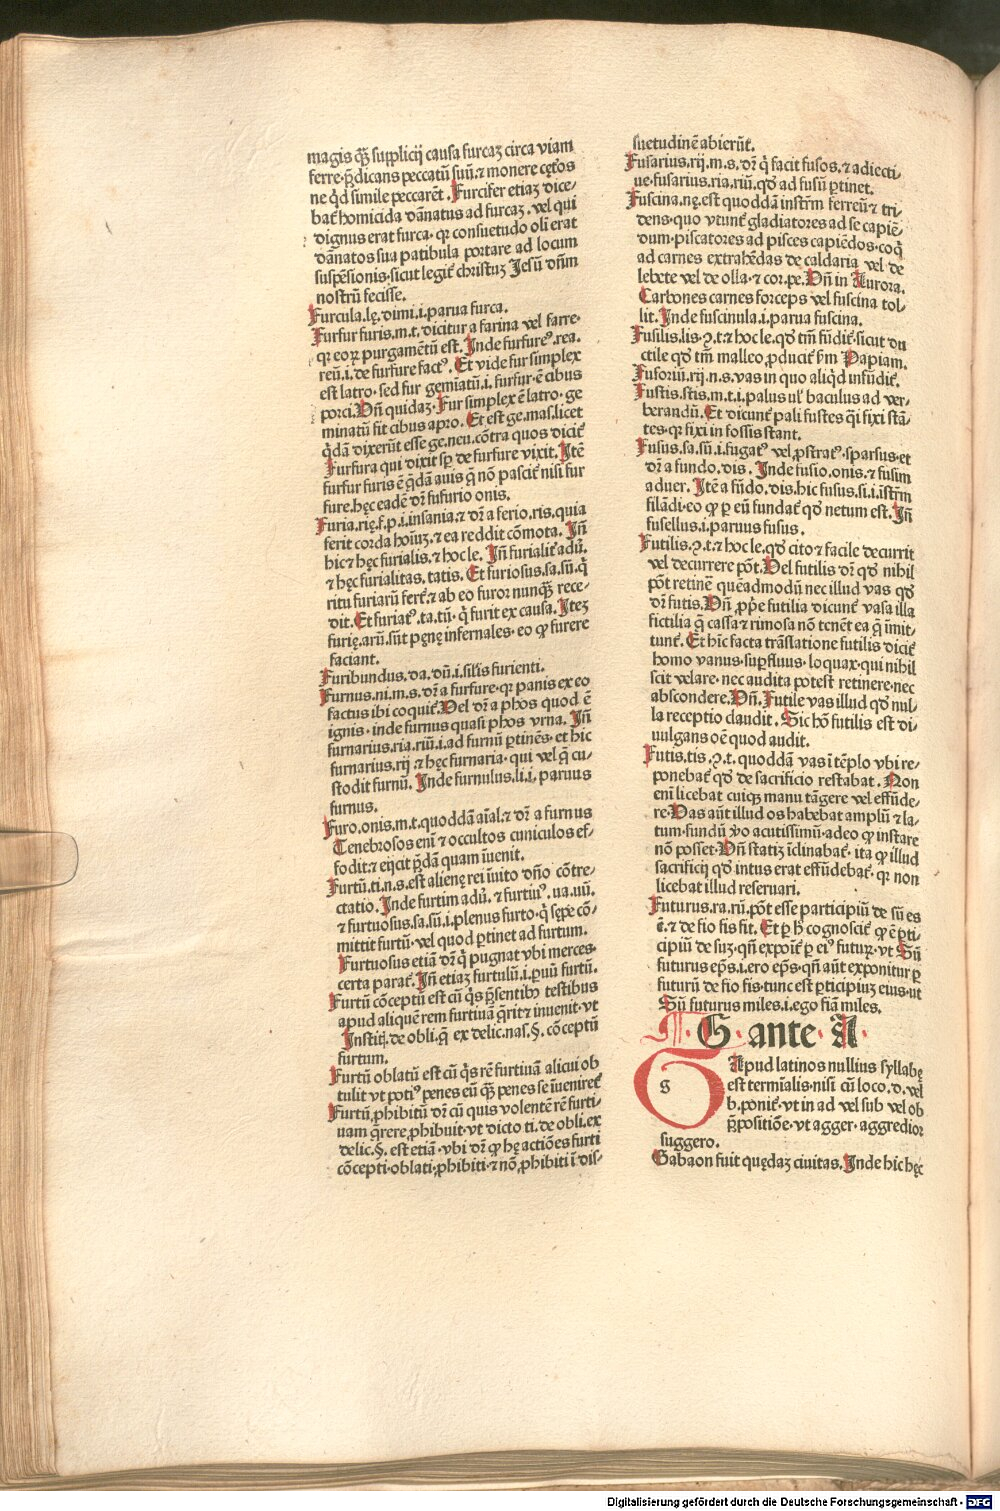 magis q̄ꝫ supplicij causa furcaꝫ circa viam
ferre·p̄dicans peccatū suū.⁊ monere cęt̄os
ne q̓d simile peccarēt. Furcifer etiaꝫ dice-
bat̄ homicida dānatus ad furcaꝫ. vel qui
dignus erat furca. qꝛ consuetudo oli̅ erat
dānatos sua patibula portare ad locum
suspēsionis.sicut legit̄ christuꝫ Jesū dn̄m
nostrū fecisse.
Furcula.lę.dimi.i.parua furca.
Furfur furis.m.t.dicitur a farina vel farre.
qꝛ eoꝝ purgamētū est. Inde furfureꝰ.rea.
reū.i.de furfure factꝰ. Et vide fur simplex
est latro. sed fur gemiatū.i.furfur.ē cibus
porci. Dn̄ quidaꝫ. Fur simplex ē latro. ge
minatū fit cibus apro. Et est ge.mas.licet
q̄dā dixerūt esse ge.neu.cōtra quos dicit̄
Furfura qui dixit sꝑ de furfure vixit. Itē
furfur furis ē q̄dā auis q̄ nō pascit̄ nisi fur
fure.hęc eadē dr̄ furfurio onis.
Furia.rię.f.p.i.insania.⁊ dr̄ a ferio.ris.quia
ferit corda hoīuꝫ.⁊ ea reddit cōmota. Jn̄
hic ⁊ hęc furialis.⁊ hoc le. Jn̄ furialit̄ adū.
⁊ hęc furialitas.tatis. Et furiosus.sa.sū.q̓
ritu furiarū fert̄.⁊ ab eo furor nunq̄ꝫ rece-
dit. Et furiatꝰ.ta.tū. q̓ furit ex causa. Iteꝫ
furię.arū.sūt pęnę infernales. eo ꝙ furere
faciant.
Furibundus.da.dū.i.sil̄is furienti.
Furnus.ni.m.s.dr̄ a furfure.qꝛ panis ex eo
factus ibi coquit̄. Vel dr̄ a phos quod ē
ignis. inde furnus quasi phos vrna. Jn̄
furnarius.ria.riū.i.ad furnū ꝑtinēs. et hic
furnarius.rij ⁊ hęc furnaria. qui vel q̄ cu-
stodit furnū. Inde furnulus.li.i. paruus
furnus.
Furo.onis.m.t.quoddā aīal.⁊ dr̄ a furnus
Tenebrosos eni̅ ⁊ occultos cuniculos ef-
fodit.⁊ eijcit p̄dam quam īuenit.
Furtū.ti.n.s.est alienę rei īuito dn̄o cōtre-
ctatio. Inde furtim adū. ⁊ furtiuꝰ.ua.uū.
⁊ furtuosus.sa.sū.i.plenus furto. q̓ sępe cō-
mittit furtū. vel quod ꝑtinet ad furtum.
Furtuosus etiā dr̄ q̓ pugnat vbi merces
certa parat̄. Jn̄ etiaꝫ furtulū.i.ꝑuū furtū.
Furtū cōceptū est cū q̓s p̄sentibꝰ testibus
apud aliquē rem furtiuā q̄rit ⁊ inuenit. vt
Institɥ. de obli.q̄ ex delic.nas.§. cōceptū
furtum.
Furtū oblatū est cū q̓s rē furtiuā alicui ob
tulit vt potiꝰ penes eū q̄ꝫ penes se īueniret̄
Furtū ꝓhibitū dr̄ cū quis volentē rē furti-
uam q̄rere ꝓhibuit. vt dicto ti. de obli.ex
delic.§. est etiā. vbi dr̄ ꝙ hę actiōes furti
cōcepti.oblati.ꝓhibiti.⁊ nō ꝓhibiti ī dis-
suetudinē abierūt.
Fusarius.rij.m.s.dr̄ q̓ facit fusos.⁊ adiecti-
ue.fusarius.ria.riū.qd̓ ad fusū ꝑtinet.
Fuscina.nę.est quoddā instr̄m ferreū ⁊ tri-
dens.quo vtunt̄ gladiatores ad se capiē-
dum.piscatores ad pisces capiēdos.coq̓
ad carnes extrahēdas de caldaria vel de
lebete vel de olla.⁊ cor.pe. Dn̄ in Aurora.
Carbones carnes forceps vel fuscina tol-
lit. Inde fuscinula.i.parua fuscina.
Fusilis.lis.ꝯ.t.⁊ hoc le.qd̓ tm̄ fūdit̄.sicut du
ctile qd̓ tm̄ malleo ꝓducit̄ ẜm Papiam.
Fusoriū.rij.n.s.vas in quo aliq̓d infūdit̄.
Fustis.stis.m.t.i.palus ul̓ baculus ad ver-
berandū. Et dicunt̄ pali fustes q̓i fixi stā-
tes.qꝛ fixi in fossis stant.
Fusus.sa.sū.i.fugatꝰ vel ꝓstratꝰ.sparsus.et
dr̄ a fundo.dis. Inde fusio.onis.⁊ fusim
aduer. Itē a fūdo.dis.hic fusus.si.i.īstr̄m
filādi.eo ꝙ ꝑ eū fundat̄ qd̓ netum est. Jn̄
fusellus.i.paruus fusus.
Futilis.ꝯ.t.⁊ hoc le.qd̓ cito ⁊ facile decurrit
vel decurrere pōt. Vel futilis dr̄ qd̓ nihil
pōt retinē queadmodū nec illud vas qd̓
dr̄ futis. Dn̄ ꝓpe futilia dicunt̄ vasa illa
fictilia q̄ cassa ⁊ rimosa nō tenēt ea q̄ īmit-
tunt̄. Et hīc facta trāslatione futilis dicit̄
homo vanus.suꝑfluus.loquax.qui nihil
scit velare.nec audita potest retinere.nec
abscondere. Dn̄. Futile vas illud qd̓ nul-
la receptio claudit. Sic hō futilis est di-
uulgans oē quod audit.
Futis.tis.ꝯ.t. quoddā vas ī tēplo vbi re-
ponebat̄ qd̓ de sacrificio restabat. Non
eni̅ licebat cuiqꝫ manu tāgere vel effūde-
re. Vas aūt illud os habebat amplū ⁊ la-
tum.fundū v̓o acutissimū.adeo ꝙ instare
nō posset. Dn̄ statiꝫ īclinabat̄. ita ꝙ illud
sacrificij qd̓ intus erat effūdebat̄. qꝛ non
licebat illud reseruari.
Futurus.ra.rū.pōt esse participiū de sū es
ē.⁊ de fio fis fit. Et ꝑ h̓ cognoscit̄ ꝙ ē ꝑti-
cipiū de suꝫ.qn̄ expoit̄ ꝑ eiꝰ futuꝝ.vt Sū
futurus ep̄s.i.ero ep̄s.qn̄ aūt exponitur ꝑ
futurū de fio fis.tunc est ꝑticipiuꝫ eius.ut
Sū futurus miles.i.ego fiā miles.
¶· G· ante· A·
G Apud latinos nullius syllabę
est termīalis.nisi cū loco .d. vel
b.ponit̄.vt in ad vel sub vel ob
p̄positiōe.vt agger.aggredior
suggero.
Gabaon fuit quędaꝫ ciuitas. Inde hic hęc
Digitalisierung gefördert durch die Deutsche Forschungsgemeinschaft - DFG